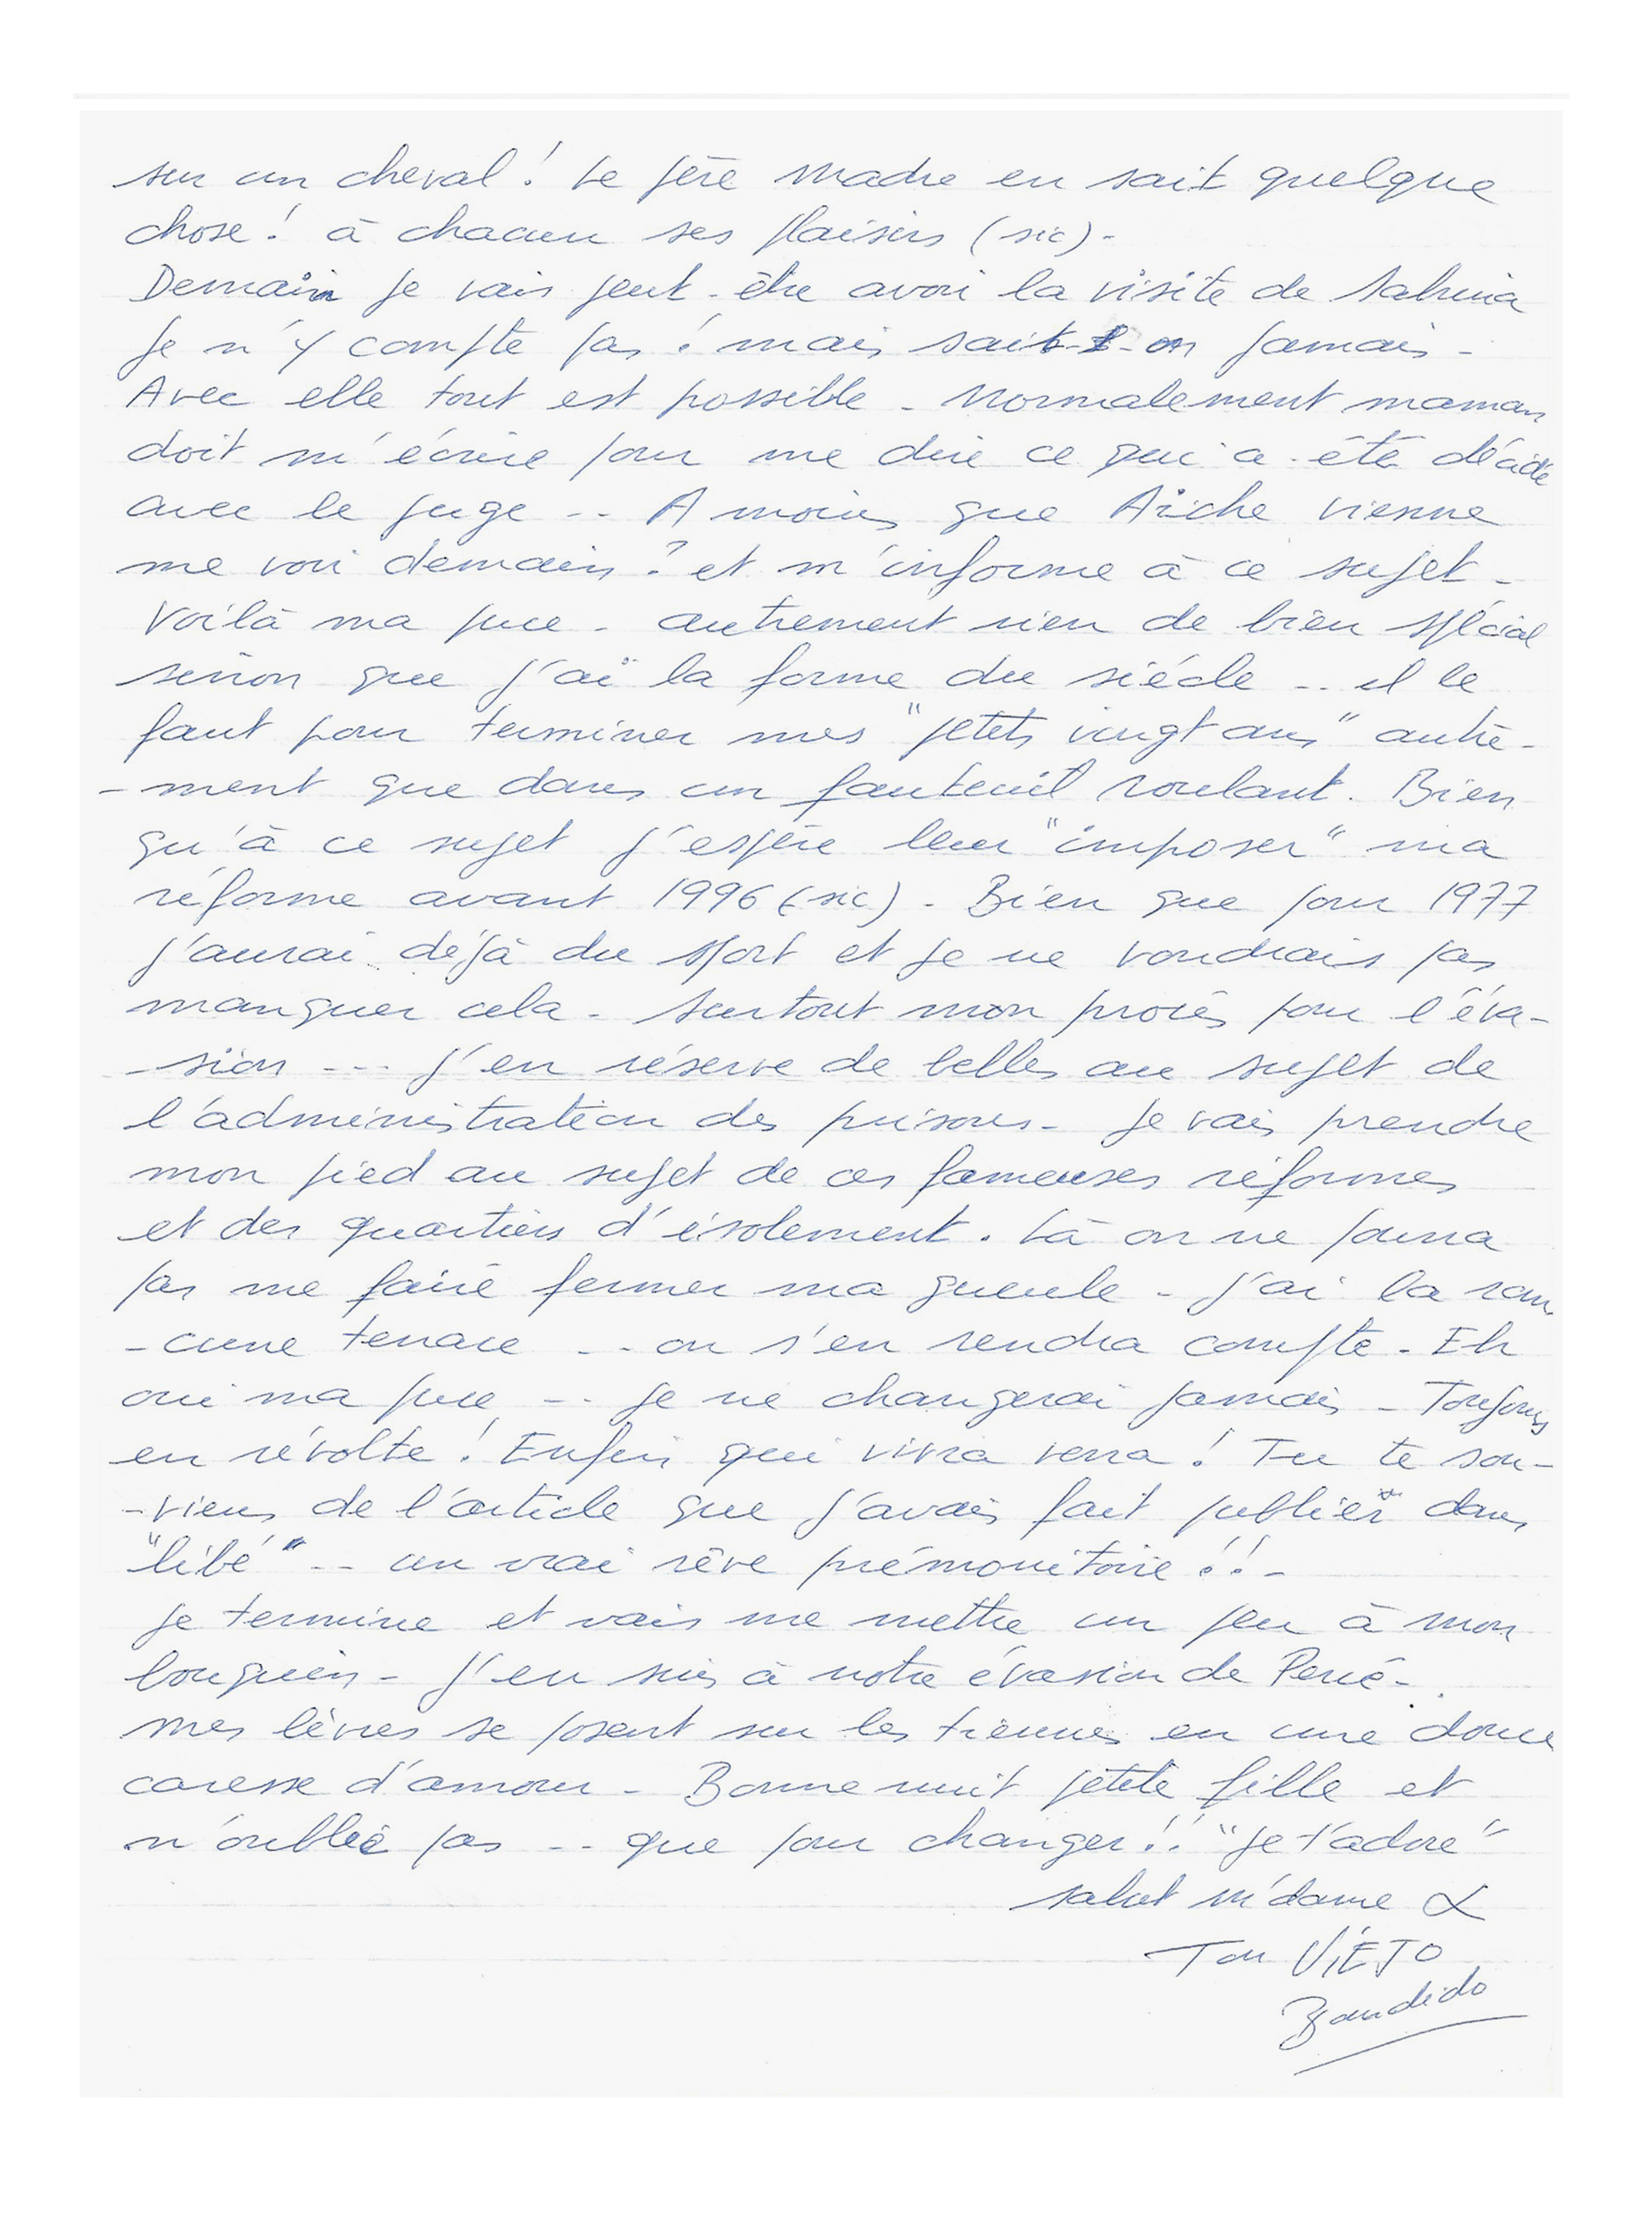 sur un cheval ! Le père Madre en sait quelque
chose ! à chacun ses plaisirs (sic) -
Demain je vais peut-être avoir la visite de Sabrina
Je n'y compte pas ! mais sait-on jamais -
Avec elle tout est possible - Normalement maman
doit m'écrire pour me dire ce qui a été décidé
avec le juge -- A moins que Aïche vienne
me voir demain ? et m'informe à ce sujet -
Voilà ma puce - autrement rien de bien spécial
sinon que j'ai la forme du siécle -- il le
faut pour terminer mes "petits vingt ans" autre-
-ment que dans un fauteuil roulant. Bien
qu'à ce sujet j'espère leur "imposer" ma
réforme avant 1996 (sic) - Bien que pour 1977
j'aurai déjà du sport et je ne voudrais pas
manquer cela - Surtout mon procès pour l'éva-
-sion --- j'en réserve de belles au sujet de
l'administration des prisons - Je vais prendre
mon pied au sujet de ces fameuses réformes
et des quartiers d'isolement. Là on ne pourra
pas me faire fermer ma gueule - j'ai la ran
-cune tenace -- on s'en rendra compte - Eh
oui ma puce -- Je ne changerai jamais - Toujours
en révolte ! Enfin qui vivra verra ! Tu te sou-
-viens de l'article que j'avais fait publier dans
"libé" -- un vrai rêve prémonitoire !! -
Je termine et vais me mettre un peu à mon
bouquin - J'en suis à notre évasion de Percé -
Mes lèvres se posent sur les tiennes en une douce
caresse d'amour - Bonne nuit petite fille et
n'oublie pas -- que pour changer !! "Je t'adore"
salut m'dame
Ton VIEJO
Bandido